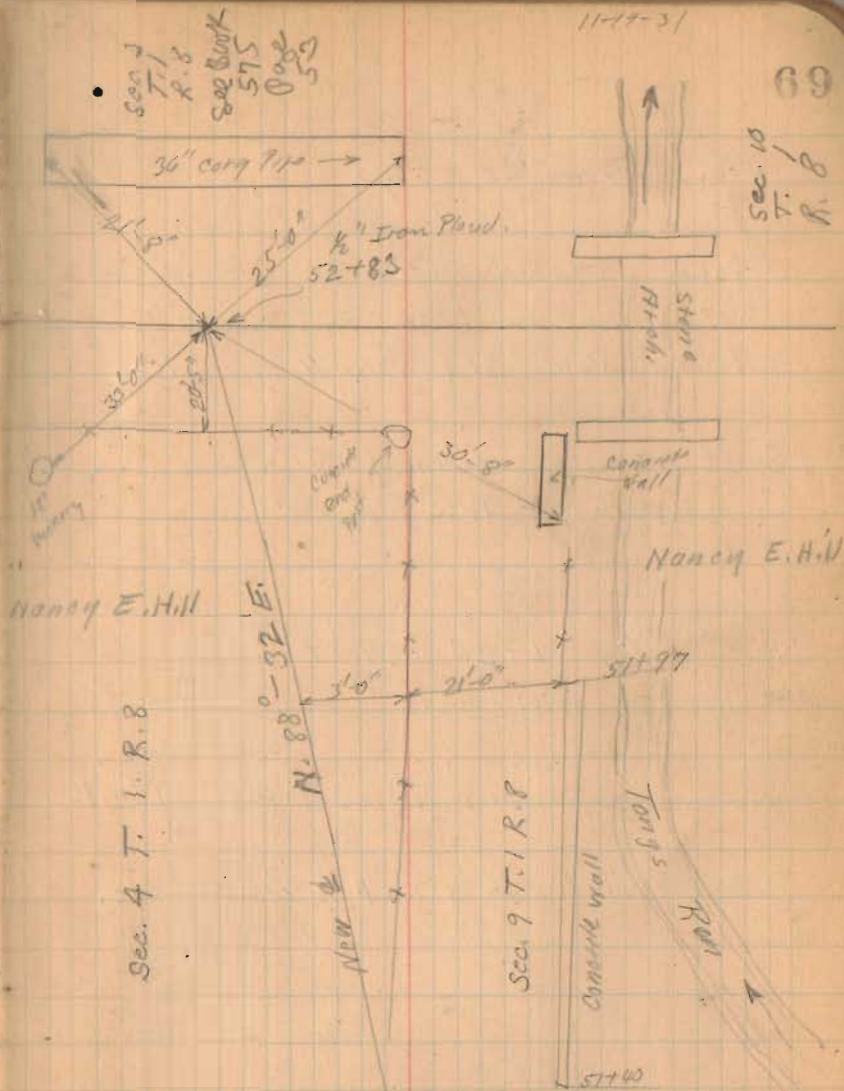 11-19-31
69
Sec. 3
T. 1
R. 8
See Book
575
Page
53
Sec. 10
T. 1
R. 8
36" corg Pipe →
21'-8"
25'-0"
½" Iron Placed.
52+83
Stone
Arch.
35'-0"
20'-5"
Concrete
End
30'-8"
Concrete
Wall
Nancy E. Hill
Nancy E. Hill
N. 88°-32 E.
3'-0"
21'-0"
51+97
Sec. 4 T. 1. R. 8
New ⅊
Sec. 9 T. 1 R. 8
Concrete Wall
Tongs
Run
51+40